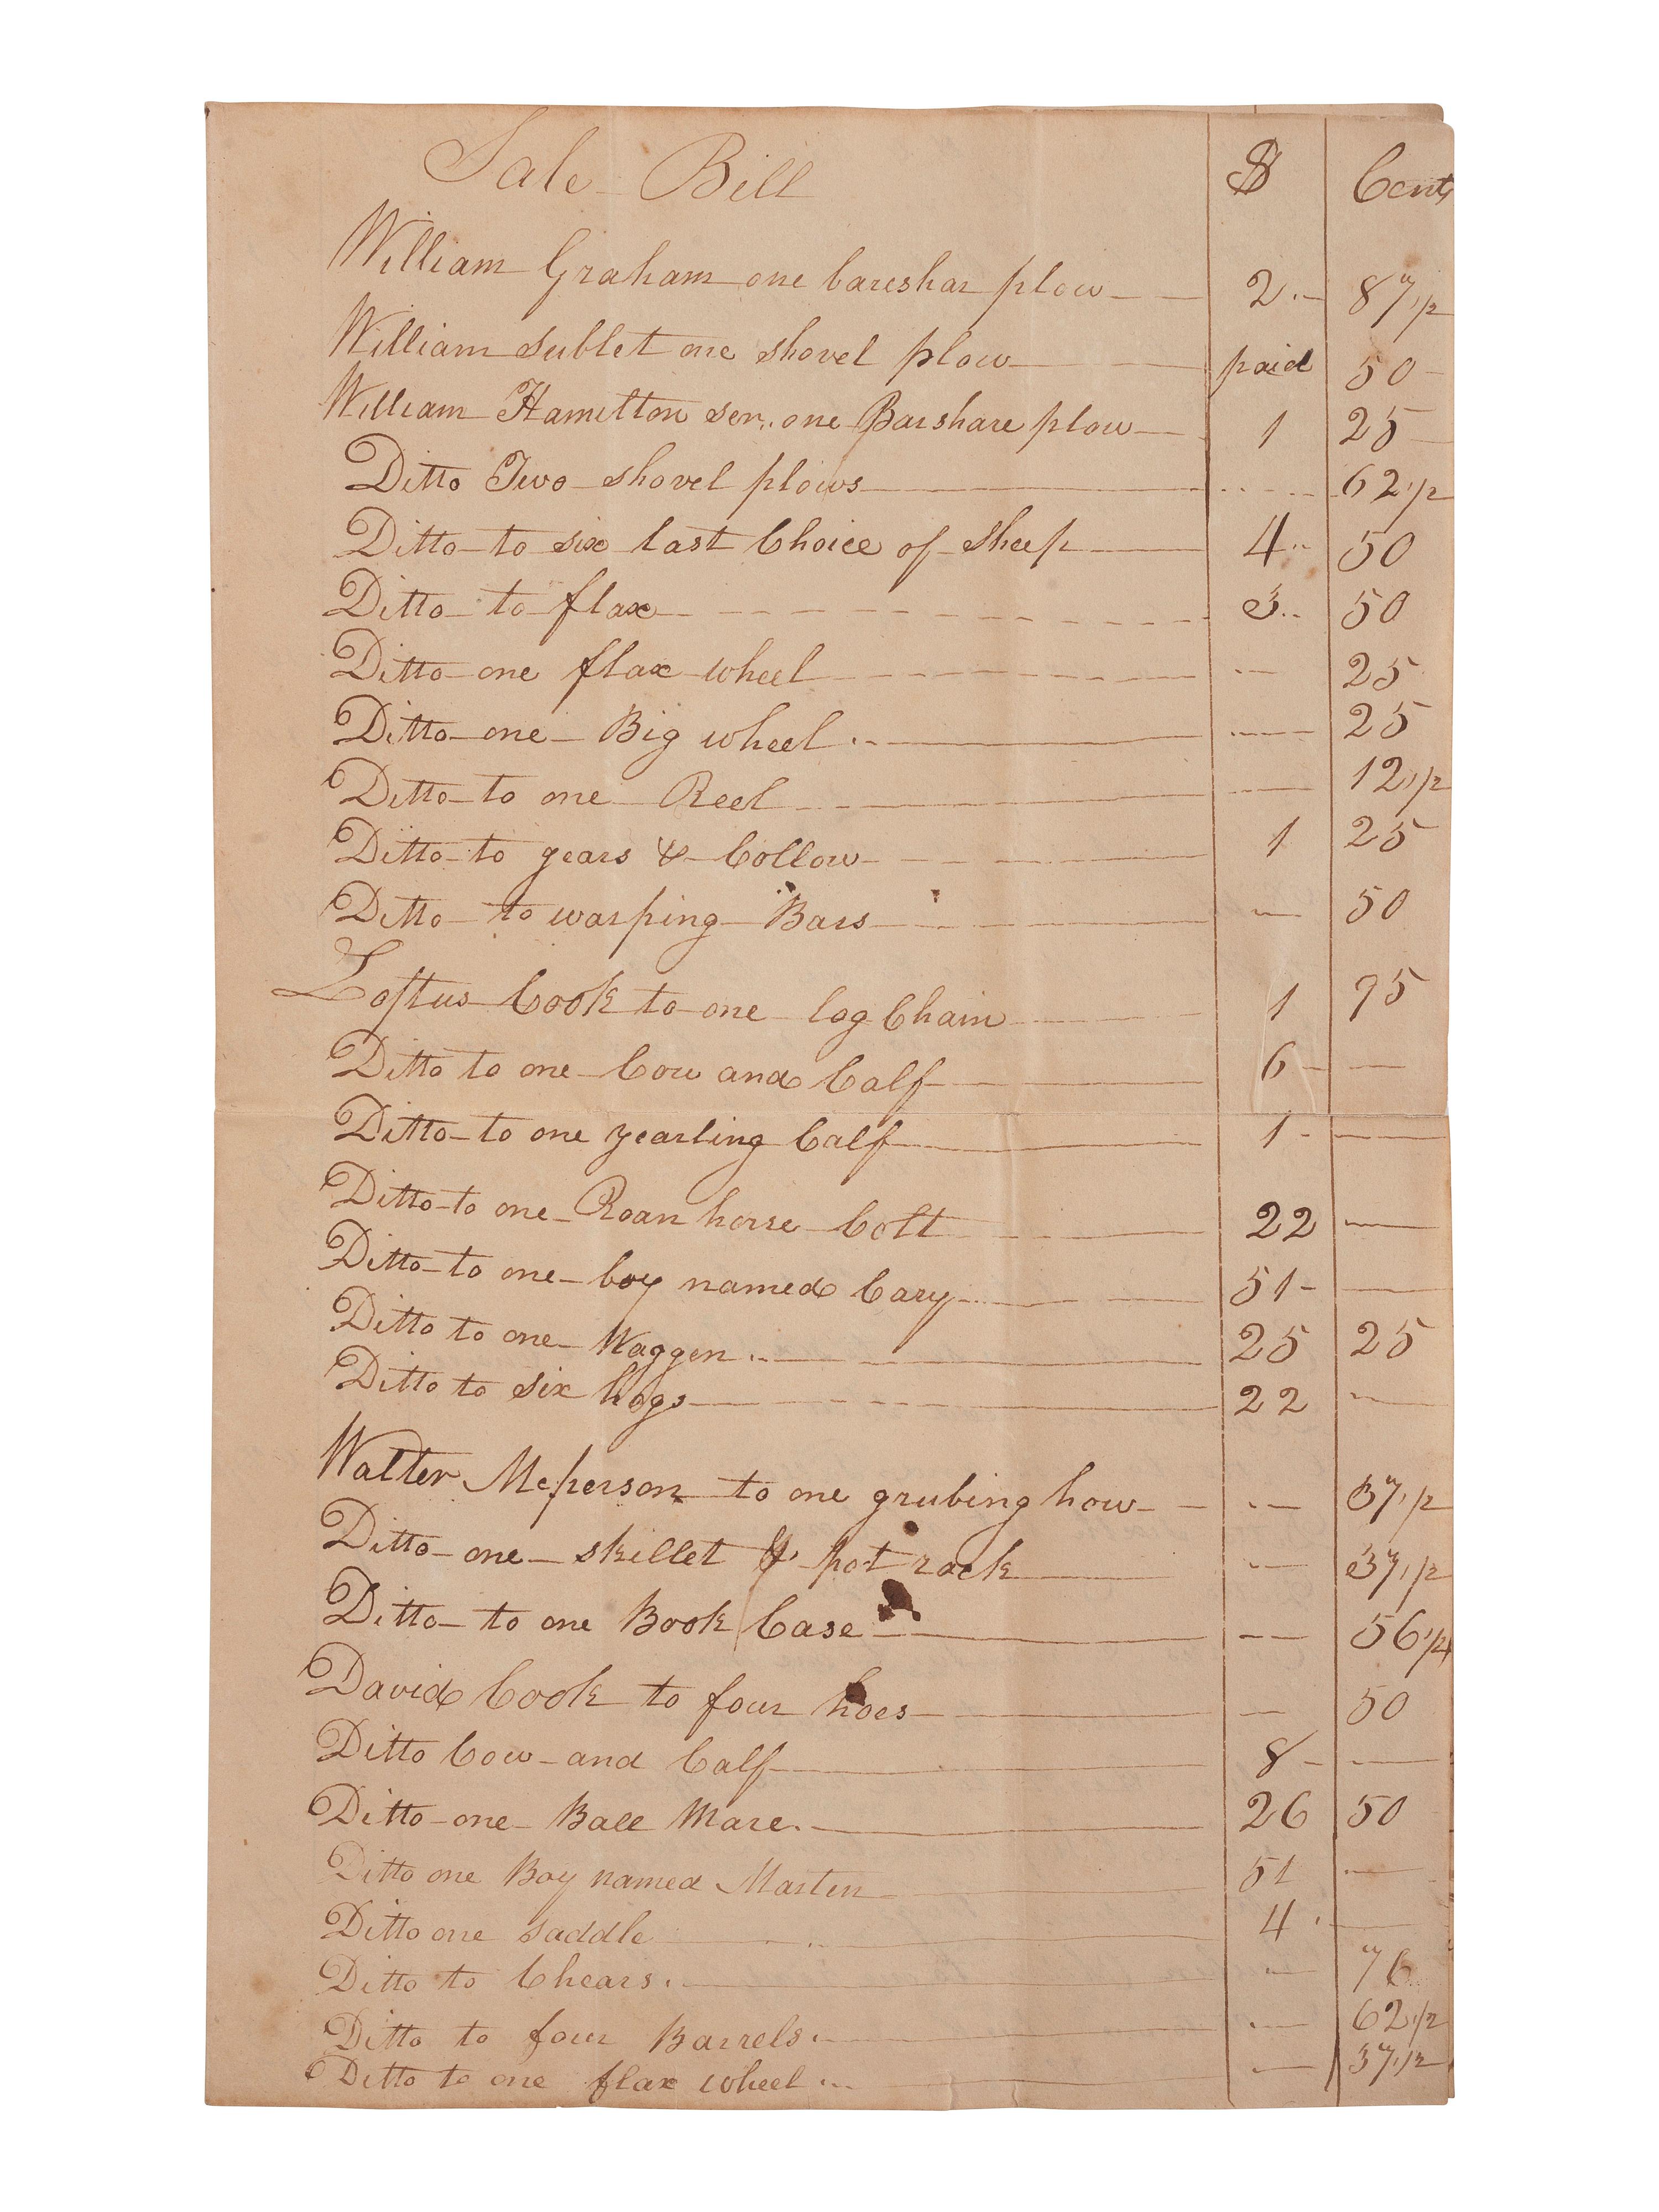 Sale Bill $ Cents
William Graham one bareshar plow 2 87 1/2
William Sublet one shovel plow paid 50
William Hamilton sen. one Barshare plow 1 25
Ditto Two shovel plows 62 1/2
Ditto to six last Choice of Sheep 4 50
Ditto to flax 3 50
Ditto one flax wheel 25
Ditto one Big wheel 25
Ditto to one Reel 12 1/2
Ditto to gears & Collow 1 25
Ditto to warping Bars 50
Loftus Cook to one log Chain 1 75
Ditto to one Cow and Calf 6
Ditto to one yearling Calf 1
Ditto to one Roan horse Colt 22
Ditto to one boy named Cary 51
Ditto to one Waggen 25 25
Ditto to six hogs 22
Walter Mcperson to one grubing how 37 1/2
Ditto one skillet & pot rack 37 1/2
Ditto to one Book Case 56 1/4
David Cook to four hoes 50
Ditto Cow and Calf 8
Ditto one Ball Mare 26 50
Ditto one Boy named Marten 51
Ditto one saddle 4
Ditto to Chears 76
Ditto to four Barrels 62 1/2
Ditto to one flax wheel 37 1/2